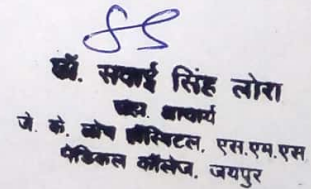 डॉ. सवाई सिंह लोरा
सह. आचार्य
जे. के. लोन हॉस्पिटल, एस.एम.एस
मेडिकल कॉलेज, जयपुर